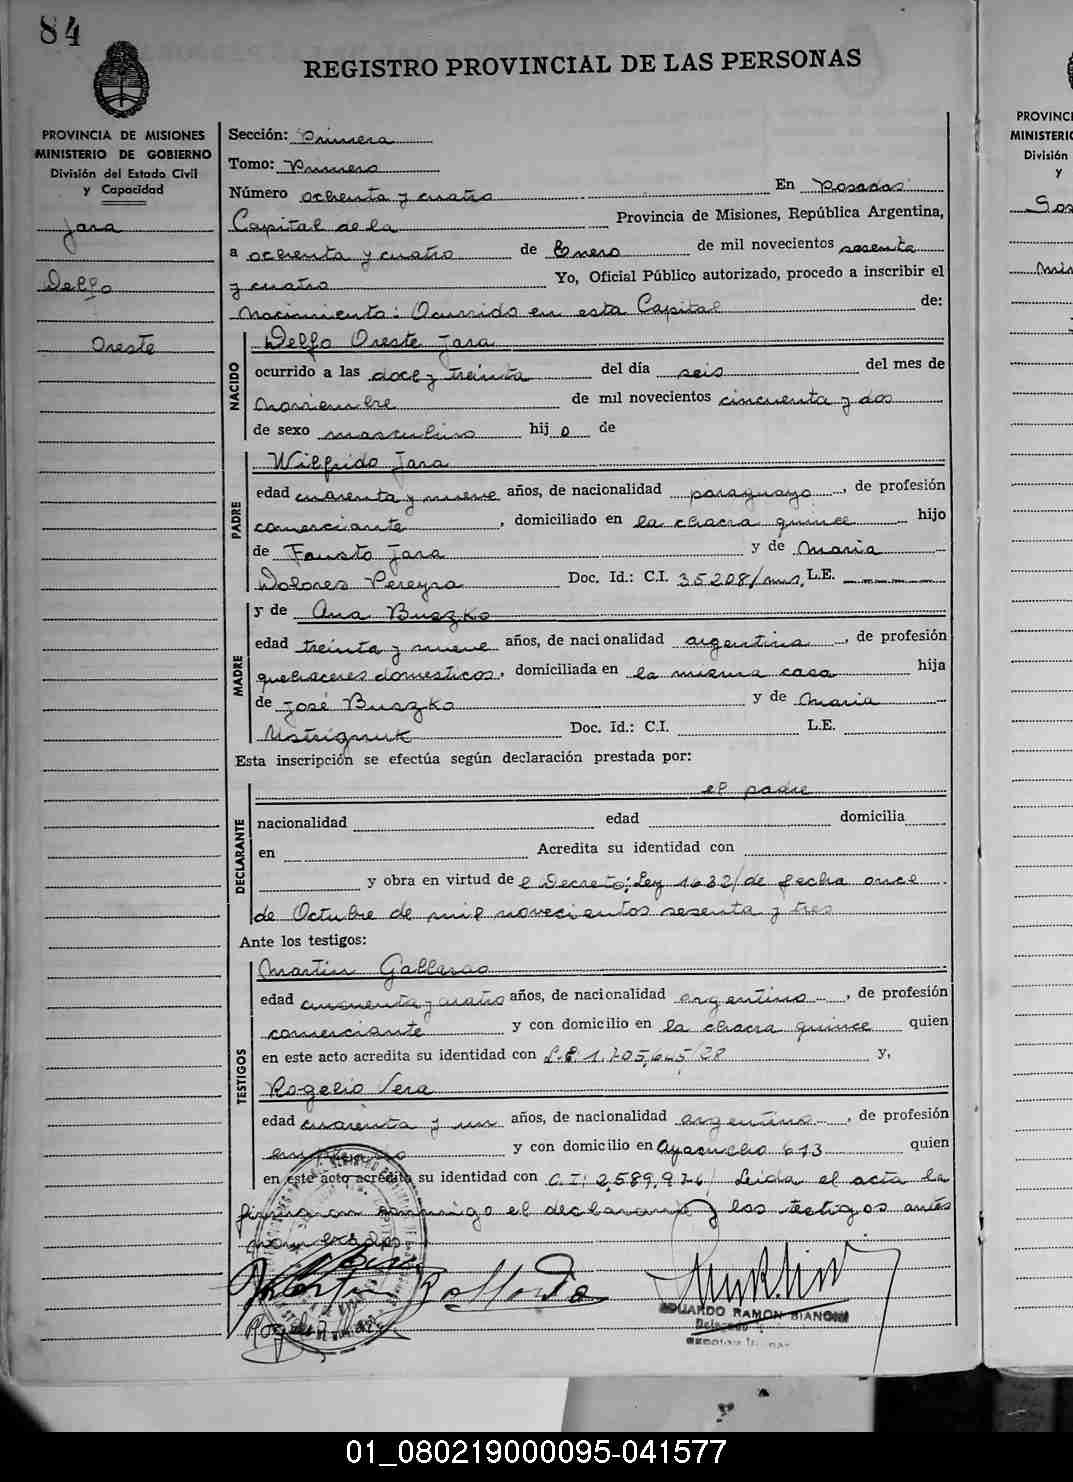 84
REGISTRO PROVINCIAL DE LAS PERSONAS
PROVINCIA DE MISIONES
MINISTERIO DE GOBIERNO
División del Estado Civil
y Capacidad
Jara
Delfo
Oreste
Sección: Primera
Tomo: Primero
Número ochenta y cuatro En Posadas
Capital de la Provincia de Misiones, República Argentina,
a ochenta y cuatro de Enero de mil novecientos sesenta
y cuatro Yo, Oficial Público autorizado, procedo a inscribir el
Nacimiento: Ocurrido en esta Capital de:
NACIDO
Delfo Oreste Jara
ocurrido a las doce y treinta del día seis del mes de
Noviembre de mil novecientos cincuenta y dos
de sexo masculino hijo de
PADRE
Wilfrido Jara
edad cuarenta y nueve años, de nacionalidad paraguayo, de profesión
comerciante, domiciliado en la chacra quince hijo
de Fausto Jara y de Maria
Dolores Pereyra Doc. Id.: C.I. 35208/ L.E.
MADRE
y de Ana Buszko
edad treinta y nueve años, de nacionalidad argentina, de profesión
quehaceres domesticos, domiciliada en la misma casa hija
de José Buszko y de Maria
Doc. Id.: C.I. L.E.
Esta inscripción se efectúa según declaración prestada por:
DECLARANTE
el padre
nacionalidad edad domicilia
en Acredita su identidad con
y obra en virtud de l Decreto; Ley 1632/ de fecha once
de Octubre de mil novecientos sesenta y tres
Ante los testigos:
TESTIGOS
Martin
edad cincuenta y cuatro años, de nacionalidad argentino, de profesión
comerciante y con domicilio en la chacra quince quien
en este acto acredita su identidad con L.E. 1.705.645/28 y,
Rogelio Vera
edad cuarenta y un años, de nacionalidad argentino, de profesión
y con domicilio en Ayacucho 613 quien
en este acto acredita su identidad con C.I: 2,589,976/ Leida el acta la
firmaron conmigo el declarante y los testigos antes
EDUARDO RAMON BIANCHI
01_080219000095-041577
PROVINCI
MINISTERIO
División
y